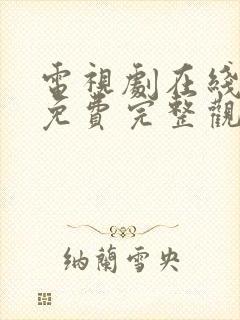 電視劇在綫
免費完整觀
纳蘭雪央